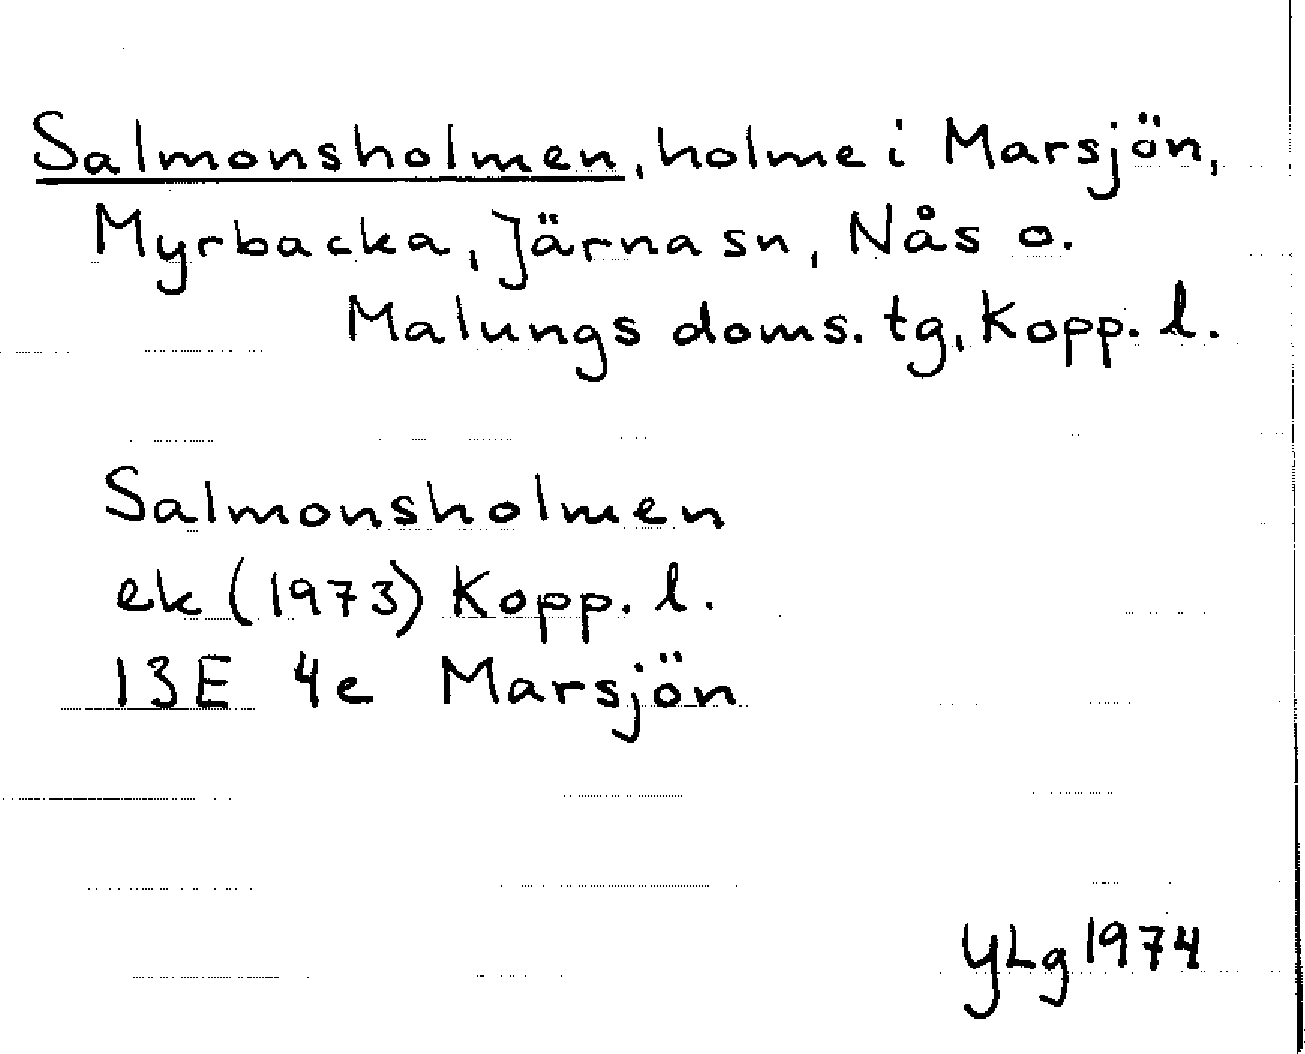 Salmonsholmen, holme i Marsjön,
Myrbacka, Järna sn, Nås o.
Malungs doms. tg, Kopp. l.
Salmonsholmen
ek (1973) Kopp. l.
13E 4e Marsjön
YLg 1974